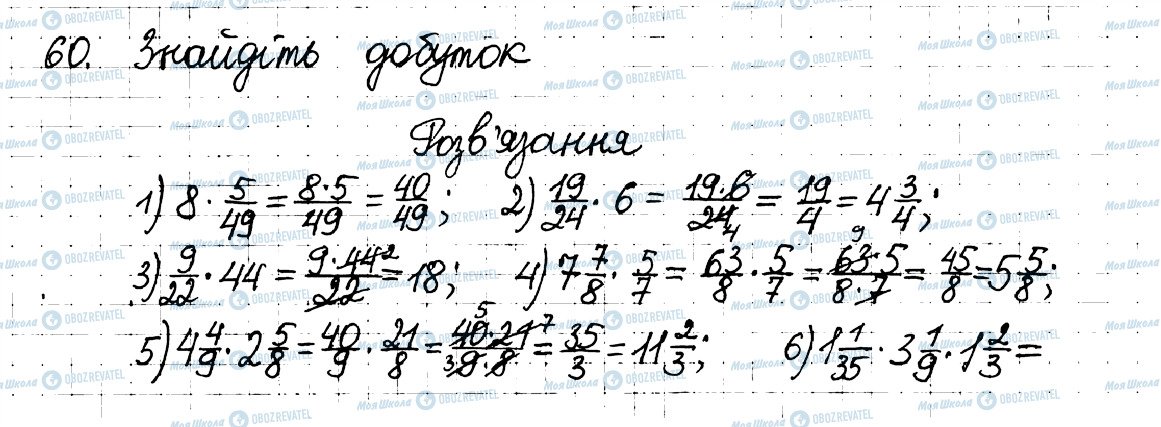 60. Знайдіть добуток
Розв'язання
1) 8 · 5/49 = 8·5/49 = 40/49; 2) 19/24 · 6 = 19·6/24 4 = 19/4 = 4 3/4;
3) 9/22 · 44 = 9·44 2/22 = 18; 4) 7 7/8 · 5/7 = 63/8 · 5/7 = 63 9·5/8·7 = 45/8 = 5 5/8;
5) 4 4/9 · 2 5/8 = 40/9 · 21/8 = 40 5·21 7/3 9·8 = 35/3 = 11 2/3; 6) 1 1/35 · 3 1/9 · 1 2/3 =